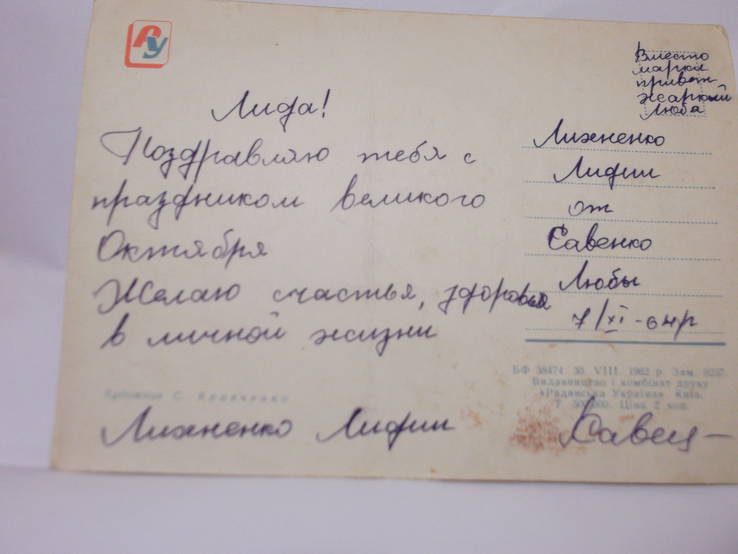 РУ
Вместо
марки
привет
жаркий
Люба
Лида!
Поздравляю тебя с
праздником великого
Октября
Желаю счастья, здоровья
в личной жизни
Лихненко
Лидии
от
Савенко
Любы
7/XI-
БФ 38474 30. VIII. 1962 р. Зам. 6257.
Видавництво і комбінат друку
«Радянська Україна», Київ.
Т. 500.000. Ціна 2 коп.
Художник С.
Лихненко Лидии